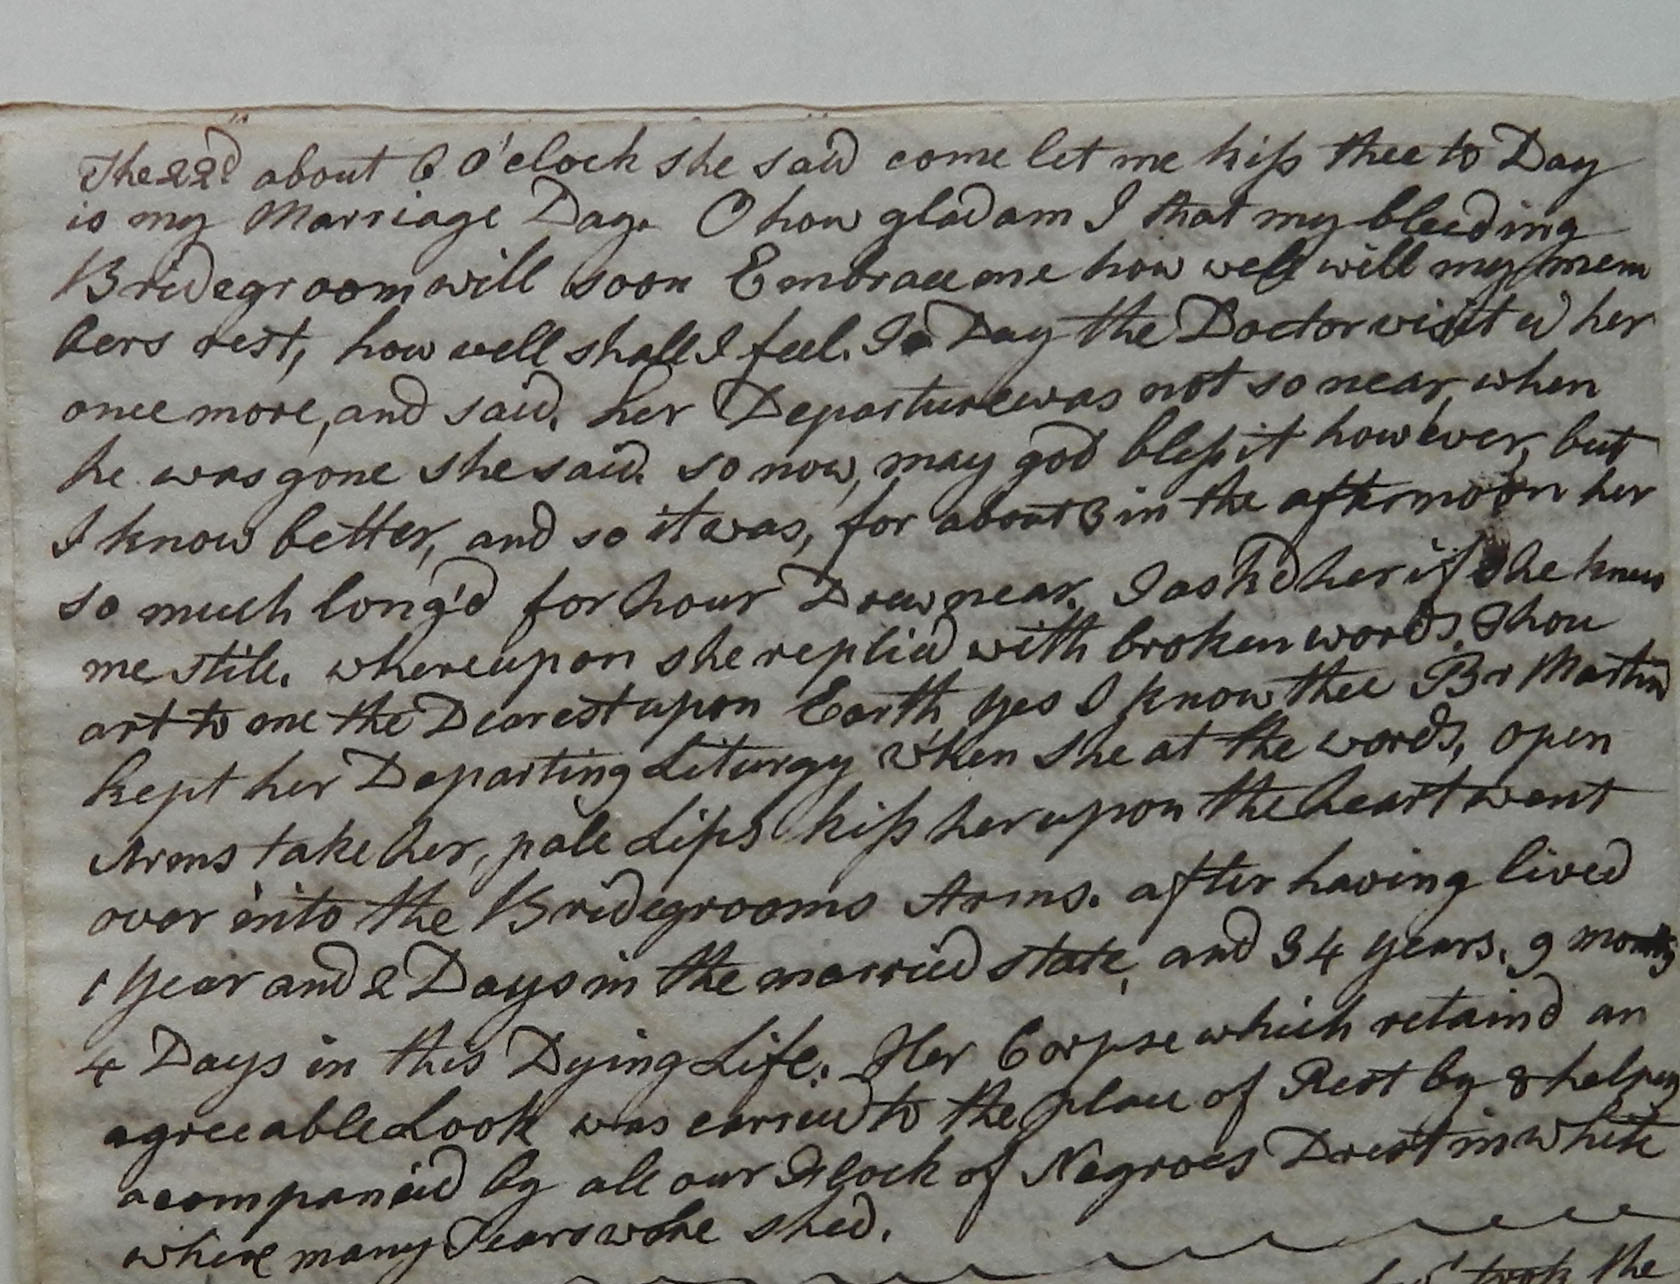 The 22d about 6 O'clock she said come let me kiss thee to Day
is my Marriage Day. O how glad am I that my bleeding
Bridegroom will soon Embrace me how well will my mem
bers rest, how well shall I feel. To Day the Doctor visit'd her
once more, and said. her Departure was not so near, when
he was gone she said. so now, may god bless it however, but
I know better, and so it was, for about 3 in the afternoon her
so much long'd for hour Drew near. I ask'd her if she knew
me still. whereupon she replied with broken words. Thou
art to me the Dearest upon Earth yes I know thee Br Martin
kept her Departing Liturgy when she at the words, open
Arms take her, pale Lips kiss her upon the heart went
over into the Bridegrooms Arms. after having lived
1 Year and 2 Days in the married state, and 34 years. 9 months
4 Days in this Dying Life. Her Corpse which retain'd an
agreeable Look was carried to the place of Rest by 8 helpers
acompanied by all our Flock of Negroes Drest in white
where many Tears whre shed.
took the